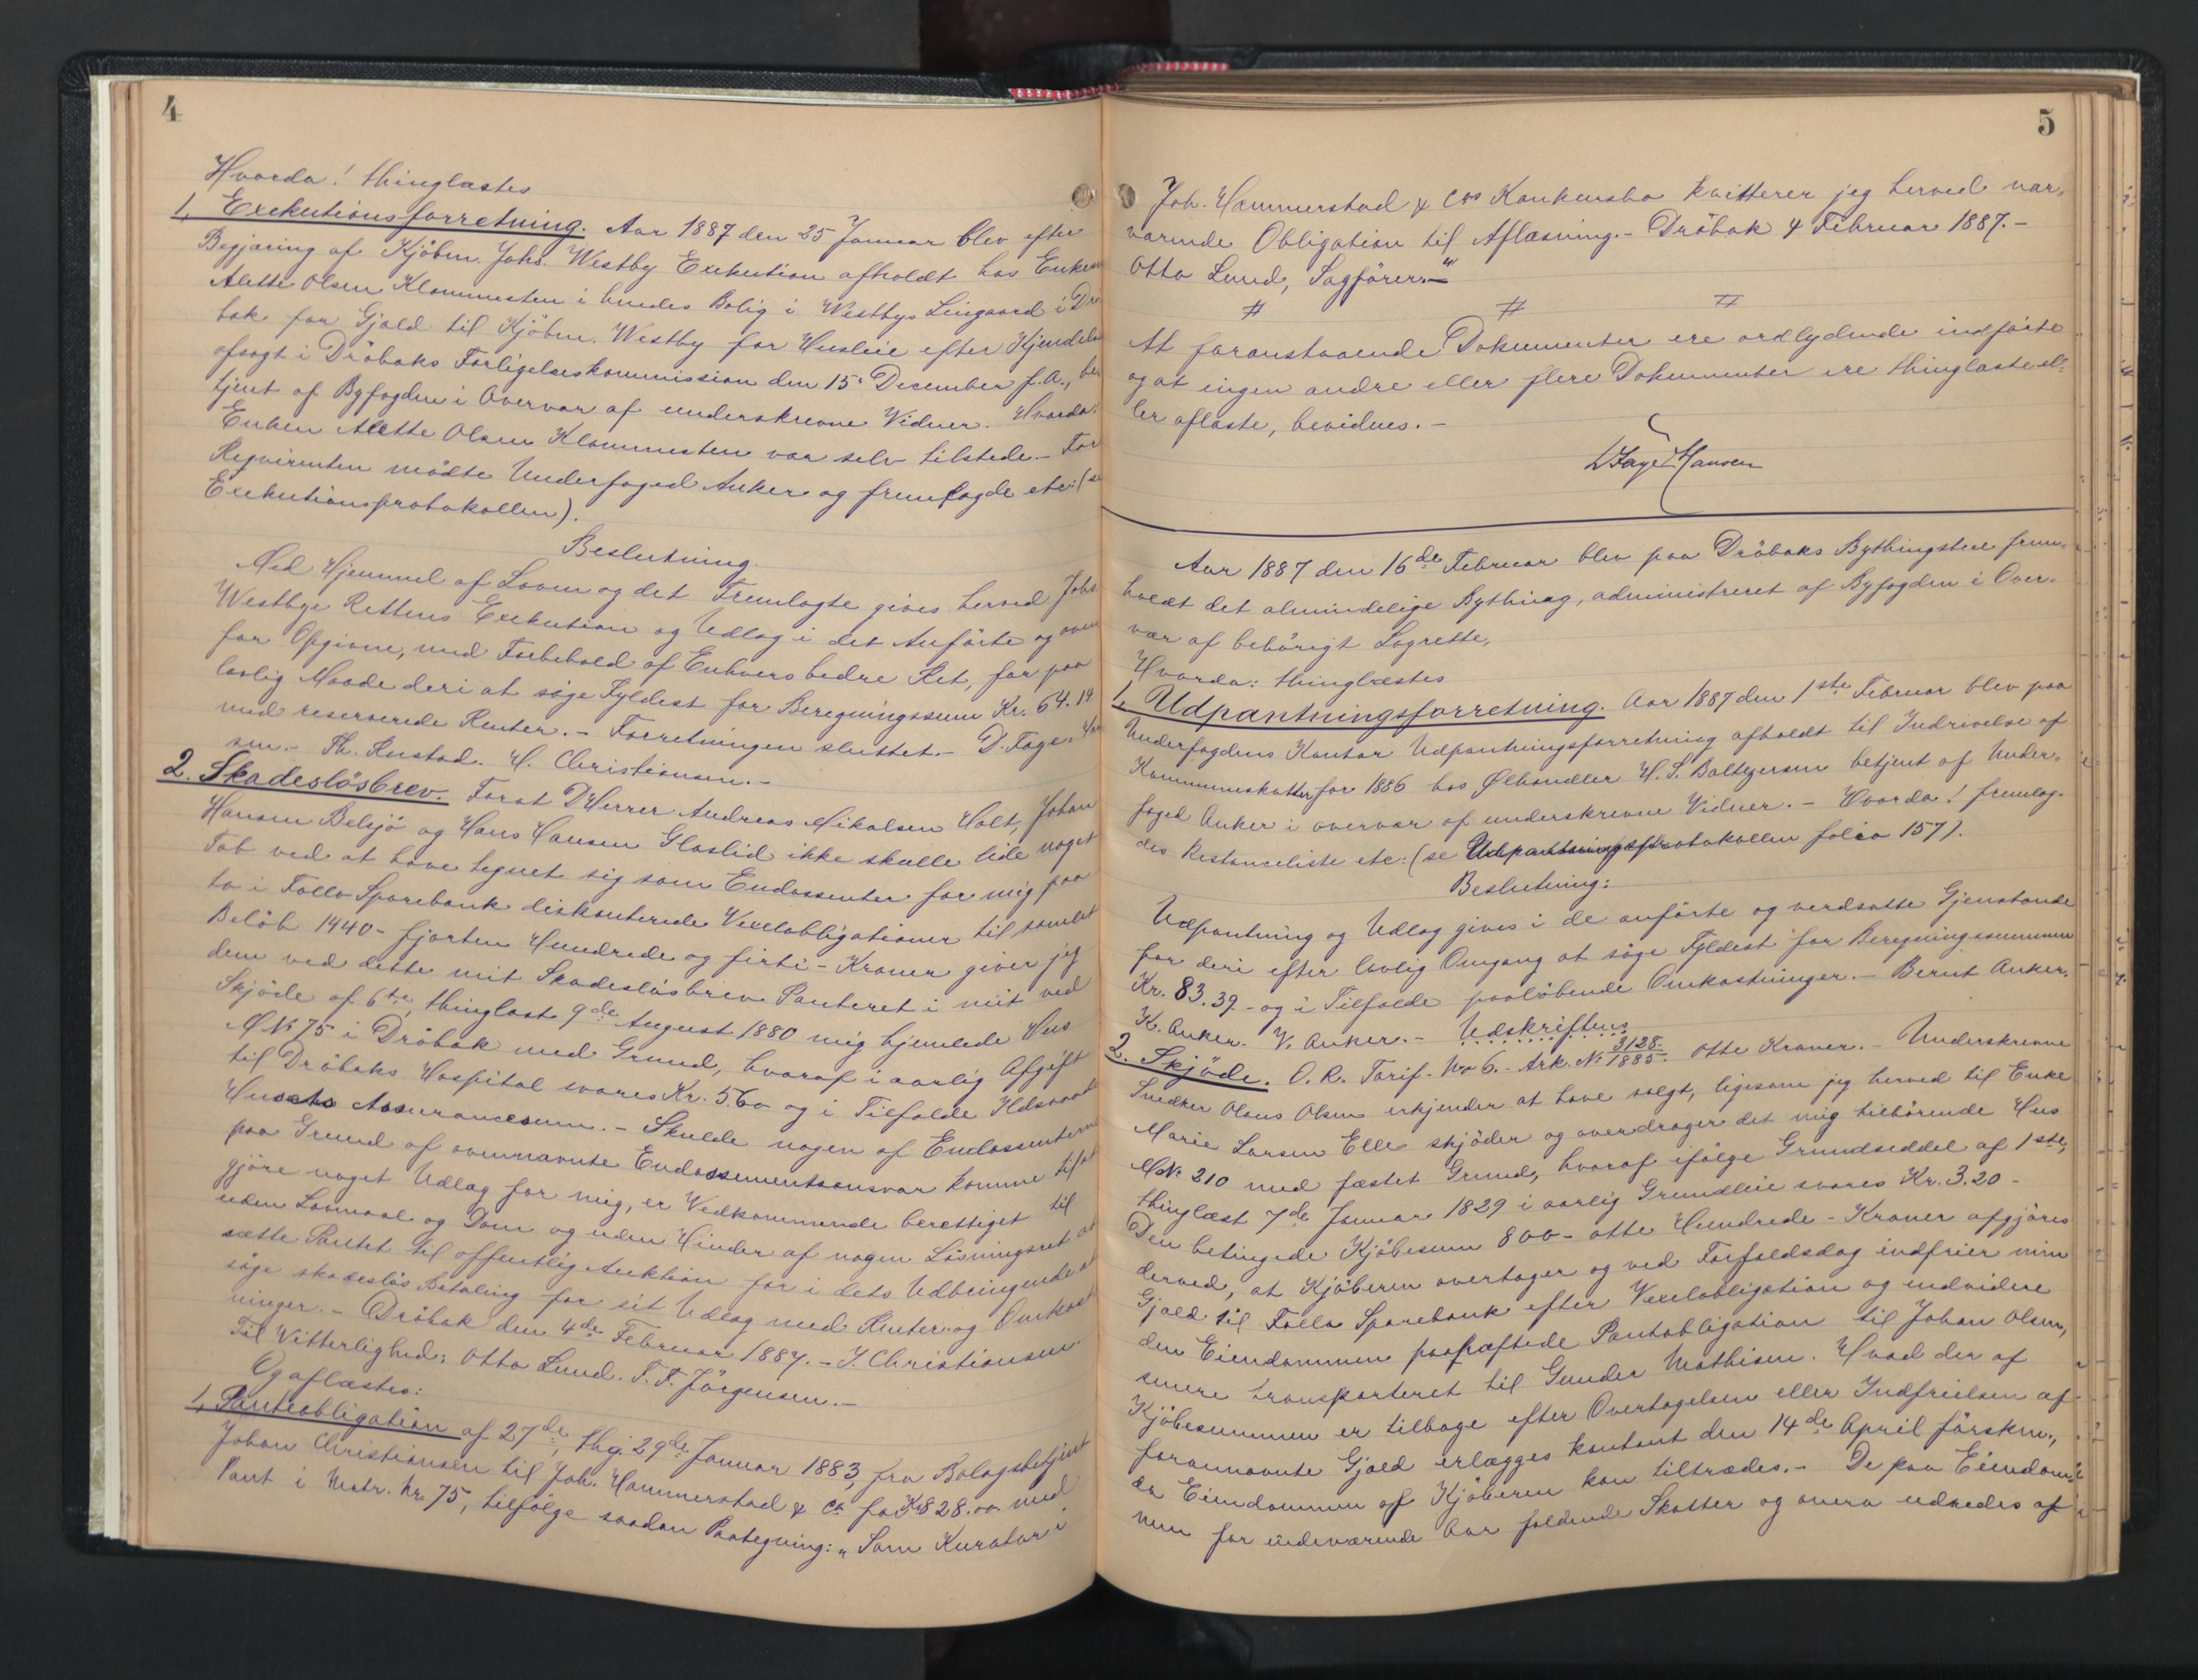 4
Hvorda! thinglæstes
1, Exekutionsforretning. Aar 1887 den 25 Januar blev efter
Begjæring af Kjöbm. Johs. Westby Exekution afholdt hos Enken
Alette Olsen Klommesten i hendes Bolig i Westbys Leigaard i Drö
bak for Gjæld til Kjöbm. Westby for Husleie efter Kjendelse
afsagt i Dröbaks Forligelseskommission den 15. December f.A., be
tjent af Byfogden i Overvær af underskrevne Vidner. Hvorda:
Enken Alette Olsen Klommesten var selv tilstede. - For
Reqvirenten mödte Underfoged Anker og fremlagde etc: (se
Exekutionsprotokollen).
Beslutning.
Med Hjemmel af Loven og det Fremlagte gives herved Johs.
Westbye Rettens Exekution og Udlæg i det Anförte og oven
for Opgivne, med Forbehold af Enhvers bedre Ret, for paa
lovlig Maade deri at söge Fyldest for Beregningssum Kr. 64.14
med reserverede Renter. - Forretningen sluttet. - D. Faye-Han
sen. - Th. Rustad. H. Christiansen. -
2. Skadeslösbrev. Forat D'Herrer Andreas Mikalsen Holt, Johan
Hansen Belsjö og Hans Hansen Glaslid ikke skulle lide noget
Tab ved at have tegnet sig som Endossenter for mig paa
to i Follo Sparebank diskonterede Vexelobligationer til samlet
Belöb 1440 - fjorten Hundrede og firti - Kroner giver jeg
dem ved dette mit Skadeslösbrev Panteret i mit ved
Skjöde af 6te, thinglæst 9de August 1880 mig hjemlede Hus
M№ 75 i Dröbak med Grund, hvoraf i aarlig Afgift
til Dröbaks Hospital svares Kr. 5.60 og i Tilfælde Ildsvaade
Husets Assurancesum. - Skulde nogen af Endossenterne
paa Grund af ovennævnte Endossementsansvar komme til at
gjöre noget Udlæg for mig, er Vedkommende berettiget til
uden Lovmaal og Dom og uden Hinder af nogen Lösningsret at
sætte Pantet til offentlig Auktion for i dets Udbringende at
söge skadeslös Betaling for sit Udlæg med Renter og Omkost
ninger. - Dröbak den 4de Februar 1887. - J. Christiansen.
Til Vitterlighed: Otto Lund. F. F. Jörgensen. -
Og aflæstes:
1, Pantobligation af 27de, thgl. 29de Januar 1883, fra Bolagsbetjent
Johan Christiansen til Joh. Hammerstad & Co for Kr 828.00 med
Pant i Matr. Nr 75, tilfölge saadan Paategning: „Som Kurator i
5
Joh. Hammerstad & Cos Konkursbo kvitterer jeg herved nær-
værende Obligation til Aflæsning. - Dröbak 4 Februar 1887. -
Otto Lund, Sagförer. -"
# # #
At foranstaaende Dokumenter ere ordlydende indförte
og at ingen andre eller flere Dokumenter ere thinglæste el-
ler aflæste, bevidnes. -
D Faye Hansen
Aar 1887 den 16de Februar blev paa Dröbaks Bythingstue frem-
holdt det almindelige Bything, administreret af Byfogden i Over-
vær af behörigt Lagrette,
Hvorda: thinglæstes
1, Udpantningsforretning. Aar 1887 den 1ste Februar blev paa
Underfogdens Kontor Udpantningsforretning afholdt til Inddrivelse af
Kommuneskatter for 1886 hos Ølhandler H. S. Baltzersen betjent af Under-
foged Anker i overvær af underskrevne Vidner. - Hvorda! fremlag-
des Restanceliste etc: (se Udpantningsprotokollen folio 157).
Beslutning:
Udpantning og Udlæg gives i de anförte og verdsatte Gjenstande
for deri efter lovlig Omgang at söge Fyldest for Beregningssummen
Kr. 83.39 - og i Tilfælde paalöbende Omkostninger. - Bernt Anker.
K. Anker. V. Anker. - Udskriftens
2. Skjöde. O. R. Tarif. No 6. - Ark. № 3128/1885. Otte Kroner. - Underskrevne
Snedker Olaus Olsen erkjender at have solgt, ligesom jeg herved til Enke
Marie Larsen Elle skjöder og overdrager det mig tilhörende Hus
M№ 210 med fæstet Grund, hvoraf ifölge Grundseddel af 1ste,
thinglæst 7de Januar 1829 i aarlig Grundleie svares Kr. 3.20 -
Den betingede Kjöbesum 800 - otte Hundrede - Kroner afgjöres
derved, at Kjöberen overtager og ved Forfaldsdag indfrier min
Gjæld til Follo Sparebank efter Vexelobligation og endvidere
den Eiendommen paahæftede Pantobligation til Johan Olsen,
senere transporteret til Gunder Mathisen. Hvad der af
Kjöbesummen er tilbage efter Overtagelsen eller Indfrielsen af
forannævnte Gjæld erlægges kontant den 14de April förstkm.,
da Eiendommen af Kjöberen kan tiltrædes. - De paa Eiendom-
men for indeværende Aar faldende Skatter og onera udredes af